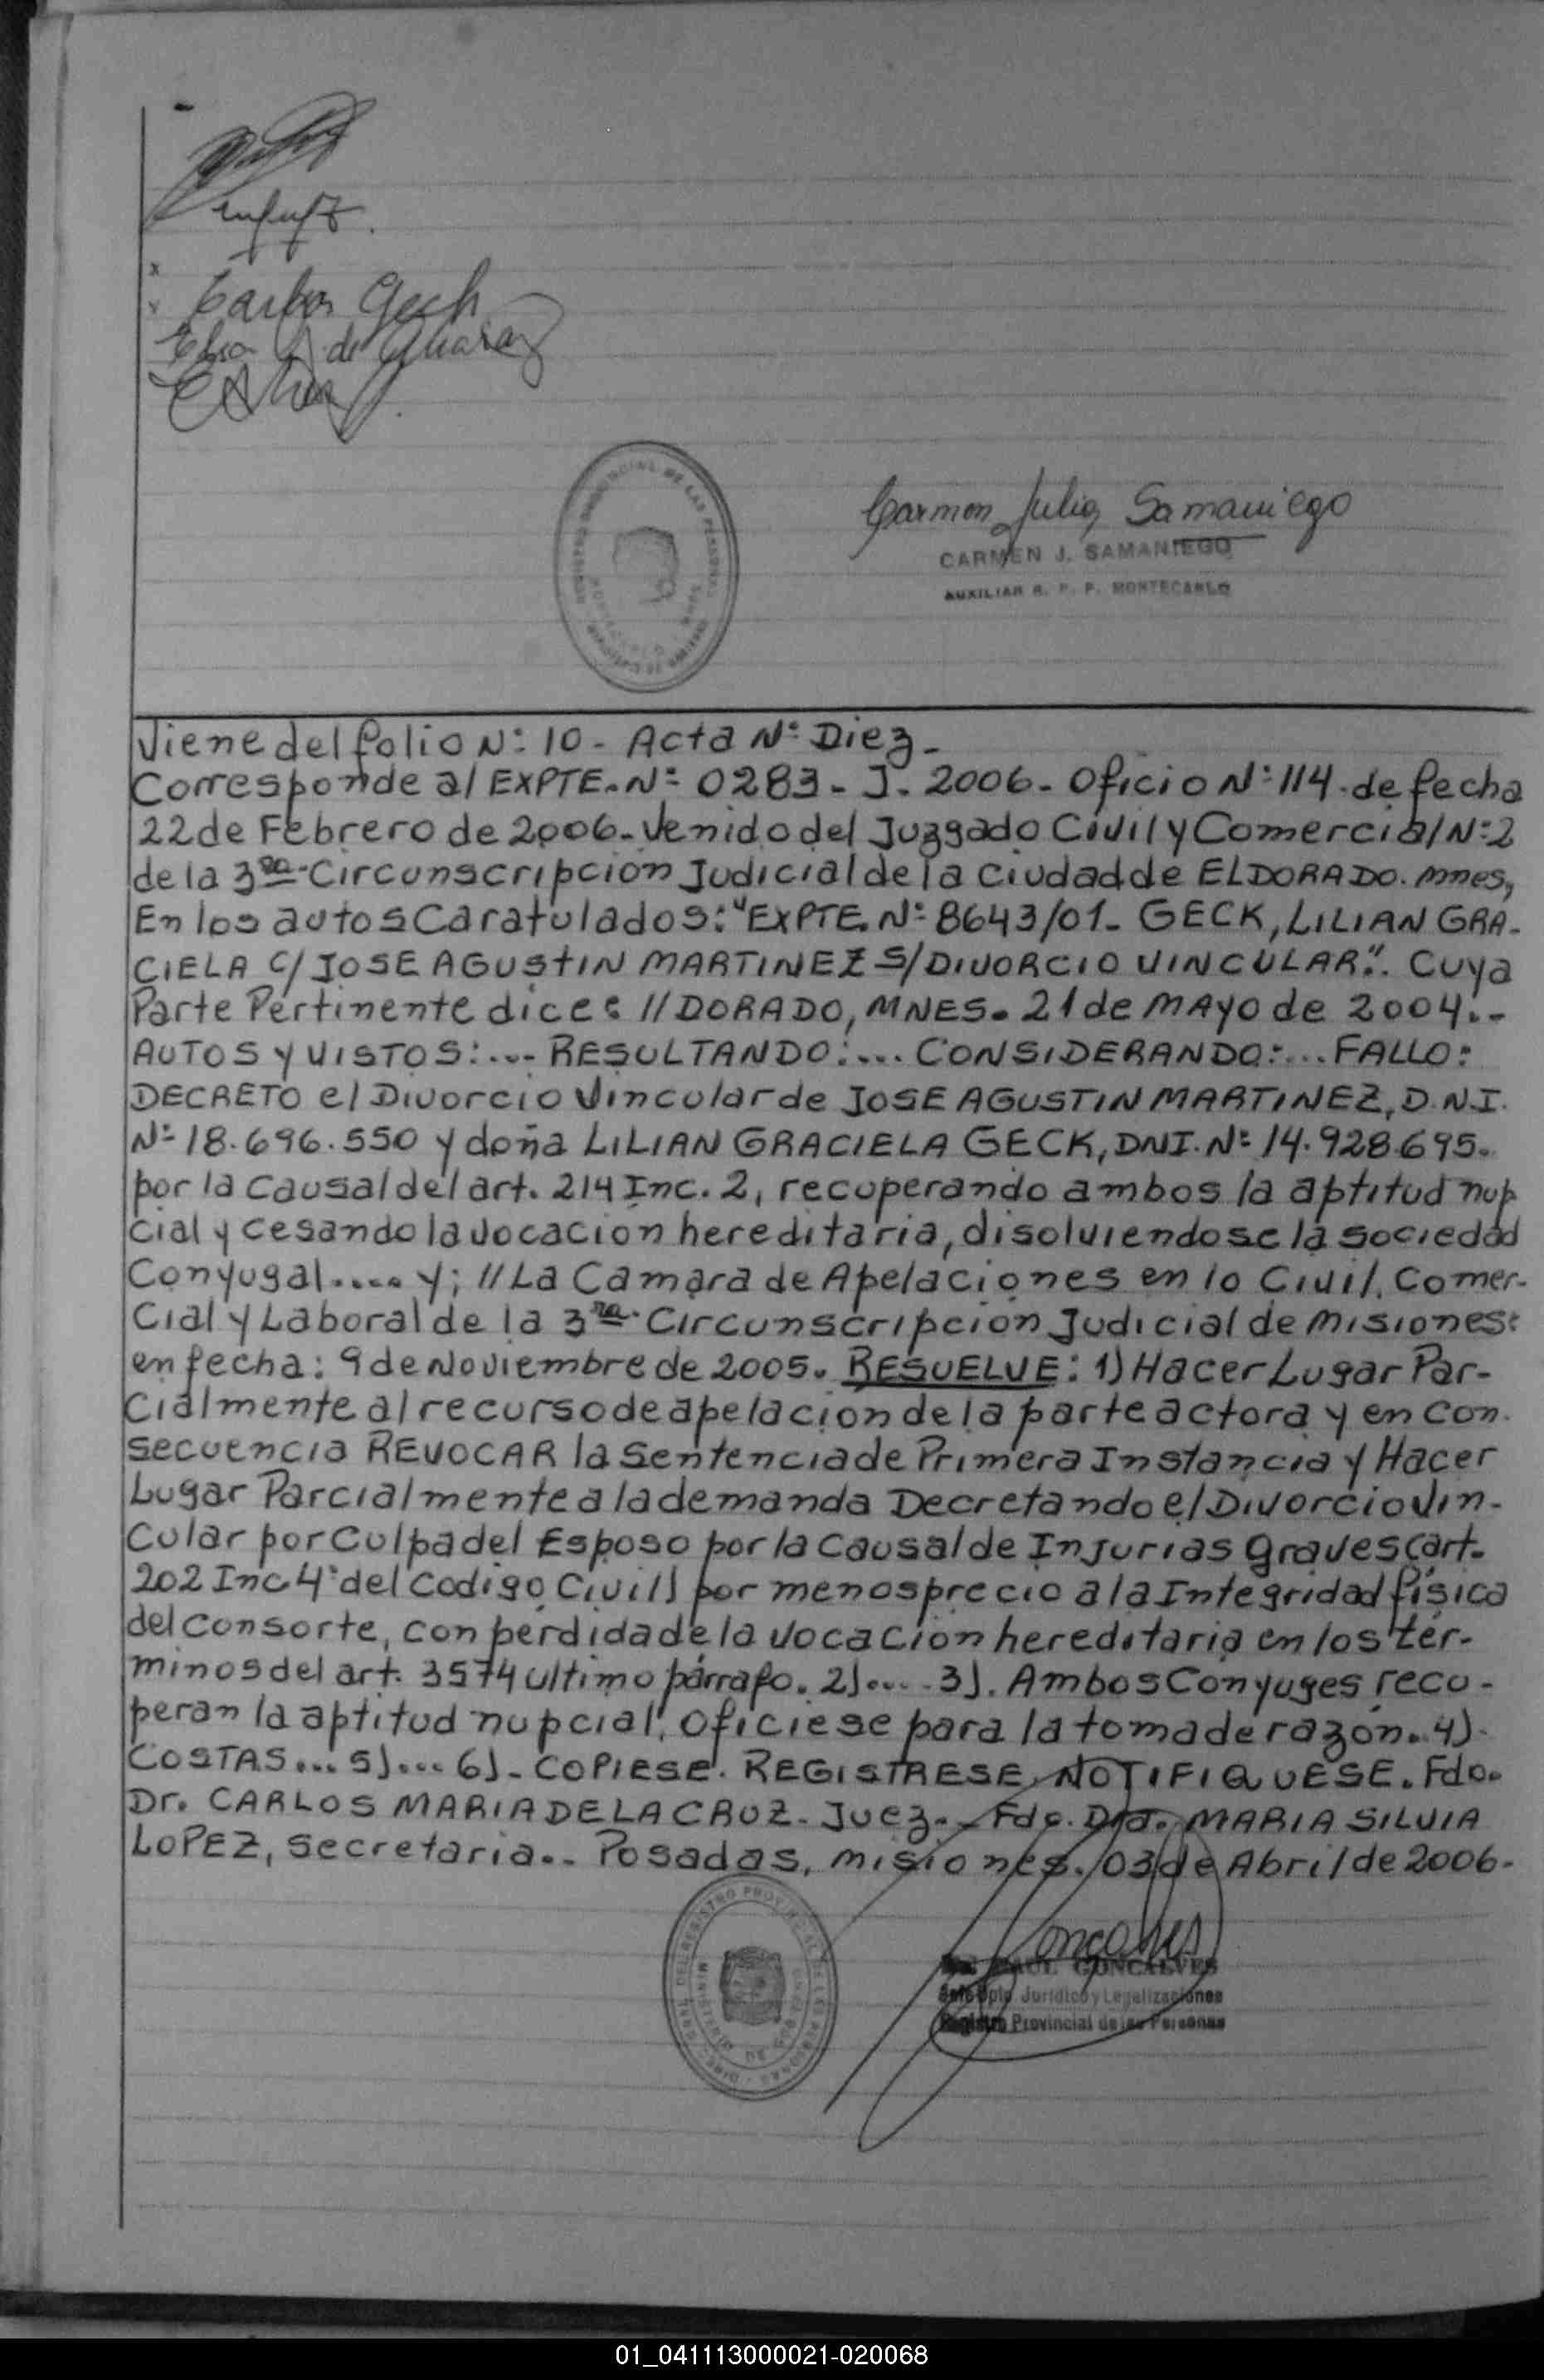 x
x Carlos Geck
Elsa G. de Alvarez
Carmen Julia Samaniego
CARMEN J. SAMANIEGO
AUXILIAR R. P. P. MONTECARLO
Viene del folio Nº 10 - Acta Nº Diez -
Corresponde al EXPTE. Nº 0283 - J - 2006 - Oficio Nº 114 - de fecha
22 de Febrero de 2006 - Venido del Juzgado Civil y Comercial Nº 2
de la 3ra Circunscripción Judicial de la Ciudad de ELDORADO. Mnes,
En los autos Caratulados: "EXPTE. Nº 8643/01 - GECK, LILIAN GRA-
CIELA C/ JOSE AGUSTIN MARTINEZ S/DIVORCIO VINCULAR". Cuya
Parte Pertinente dice: //DORADO, MNES. 21 de MAYO de 2004.-
AUTOS Y VISTOS:... RESULTANDO:... CONSIDERANDO:... FALLO:
DECRETO el Divorcio Vincular de JOSE AGUSTIN MARTINEZ, D.N.I.
Nº 18.696.550 y doña LILIAN GRACIELA GECK, DNI. Nº 14.928.695.
por la Causal del art. 214 Inc. 2, recuperando ambos la aptitud nup
cial y cesando la vocación hereditaria, disolviendose la sociedad
Conyugal.... y; // La Camara de Apelaciones en lo Civil, Comer-
cial y Laboral de la 3ra Circunscripción Judicial de Misiones:
en fecha: 9 de Noviembre de 2005. RESUELVE: 1) Hacer Lugar Par-
cialmente al recurso de apelación de la parte actora y en Con-
secuencia REVOCAR la Sentencia de Primera Instancia y Hacer
Lugar Parcialmente a la demanda Decretando el Divorcio Vin-
cular por Culpa del Esposo por la Causal de Injurias graves (art.
202 Inc. 4º del Codigo Civil) por menosprecio a la Integridad física
del Consorte, con perdida de la vocación hereditaria en los tér-
minos del art. 3574 ultimo párrafo. 2).... 3). Ambos Conyuges recu-
peran la aptitud nupcial. Oficiese para la toma de razón. 4)-
COSTAS... 5).... 6)- COPIESE. REGISTRESE. NOTIFIQUESE. Fdo.
Dr. CARLOS MARIA DE LA CRUZ - Juez. - Fdo. Dra. MARIA SILVIA
LOPEZ, Secretaria.. Posadas, misiones. 03 de Abril de 2006-
RAUL GONCALVES
Jefe Dpto. Jurídico y Legalizaciones
Registro Provincial de las Personas
01_041113000021-020068